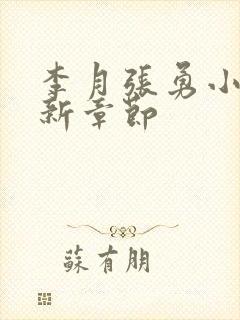 李月張勇小
新章節
蘇有朋